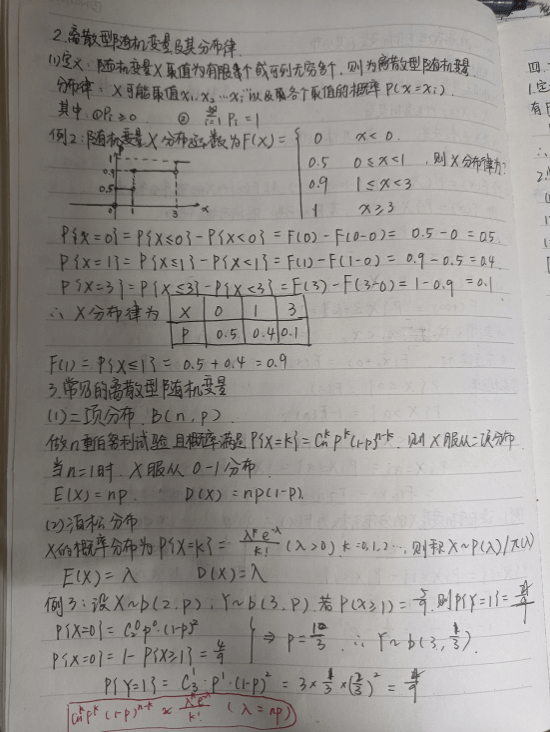 2.离散型随机变量及其分布律
(1)定义:随机变量X取值为有限个或可列无穷多个,则为离散型随机变量
分布律:X可能取值x₁,x₂…xᵢ…以及取各个取值的概率P(x=xᵢ)
其中:①Pᵢ≥0 ② ∞Σi=1 Pᵢ=1
例2:随机变量X分布函数为F(x)= { 0 x<0
0.5 0≤x<1 则X分布律为?
0.9 1≤x<3
1 x≥3
1
0.9
0.5
0 1 3 x
P{X=0}=P{X≤0}-P{X<0}=F(0)-F(0-0)=0.5-0=0.5
P{X=1}=P{X≤1}-P{X<1}=F(1)-F(1-0)=0.9-0.5=0.4
P{X=3}=P{X≤3}-P{X<3}=F(3)-F(3-0)=1-0.9=0.1
∴X分布律为 X 0 1 3
P 0.5 0.4 0.1
F(1)=P{X≤1}=0.5+0.4=0.9
3.常见的离散型随机变量
(1)二项分布 B(n,p)
做n重伯努利试验,且概率满足P{X=k}=Cₙᵏpᵏ(1-p)ⁿ⁻ᵏ,则X服从二项分布
当n=1时,X服从0-1分布
E(X)=np D(X)=np(1-p)
(2)泊松分布
X的概率分布为P{X=k}=λᵏe^-λ/k! (λ>0) k=0,1,2…,则称X~P(λ)/π(λ)
E(X)=λ D(X)=λ
例3:设X~b(2,p),Y~b(3,p),若P(X≥1)=5/9,则P{Y=1}=4/9
P{X=0}=C₂⁰p⁰·(1-p)²
P{X=0}=1-P{X≥1}=4/9 } ⇒ p=1/3 ∴Y~b(3,1/3)
P{Y=1}=C₃¹·p¹·(1-p)²=3×1/3×(2/3)²=4/9
Cₙᵏpᵏ(1-p)ⁿ⁻ᵏ≈λᵏe^-λ/k! (λ=np)